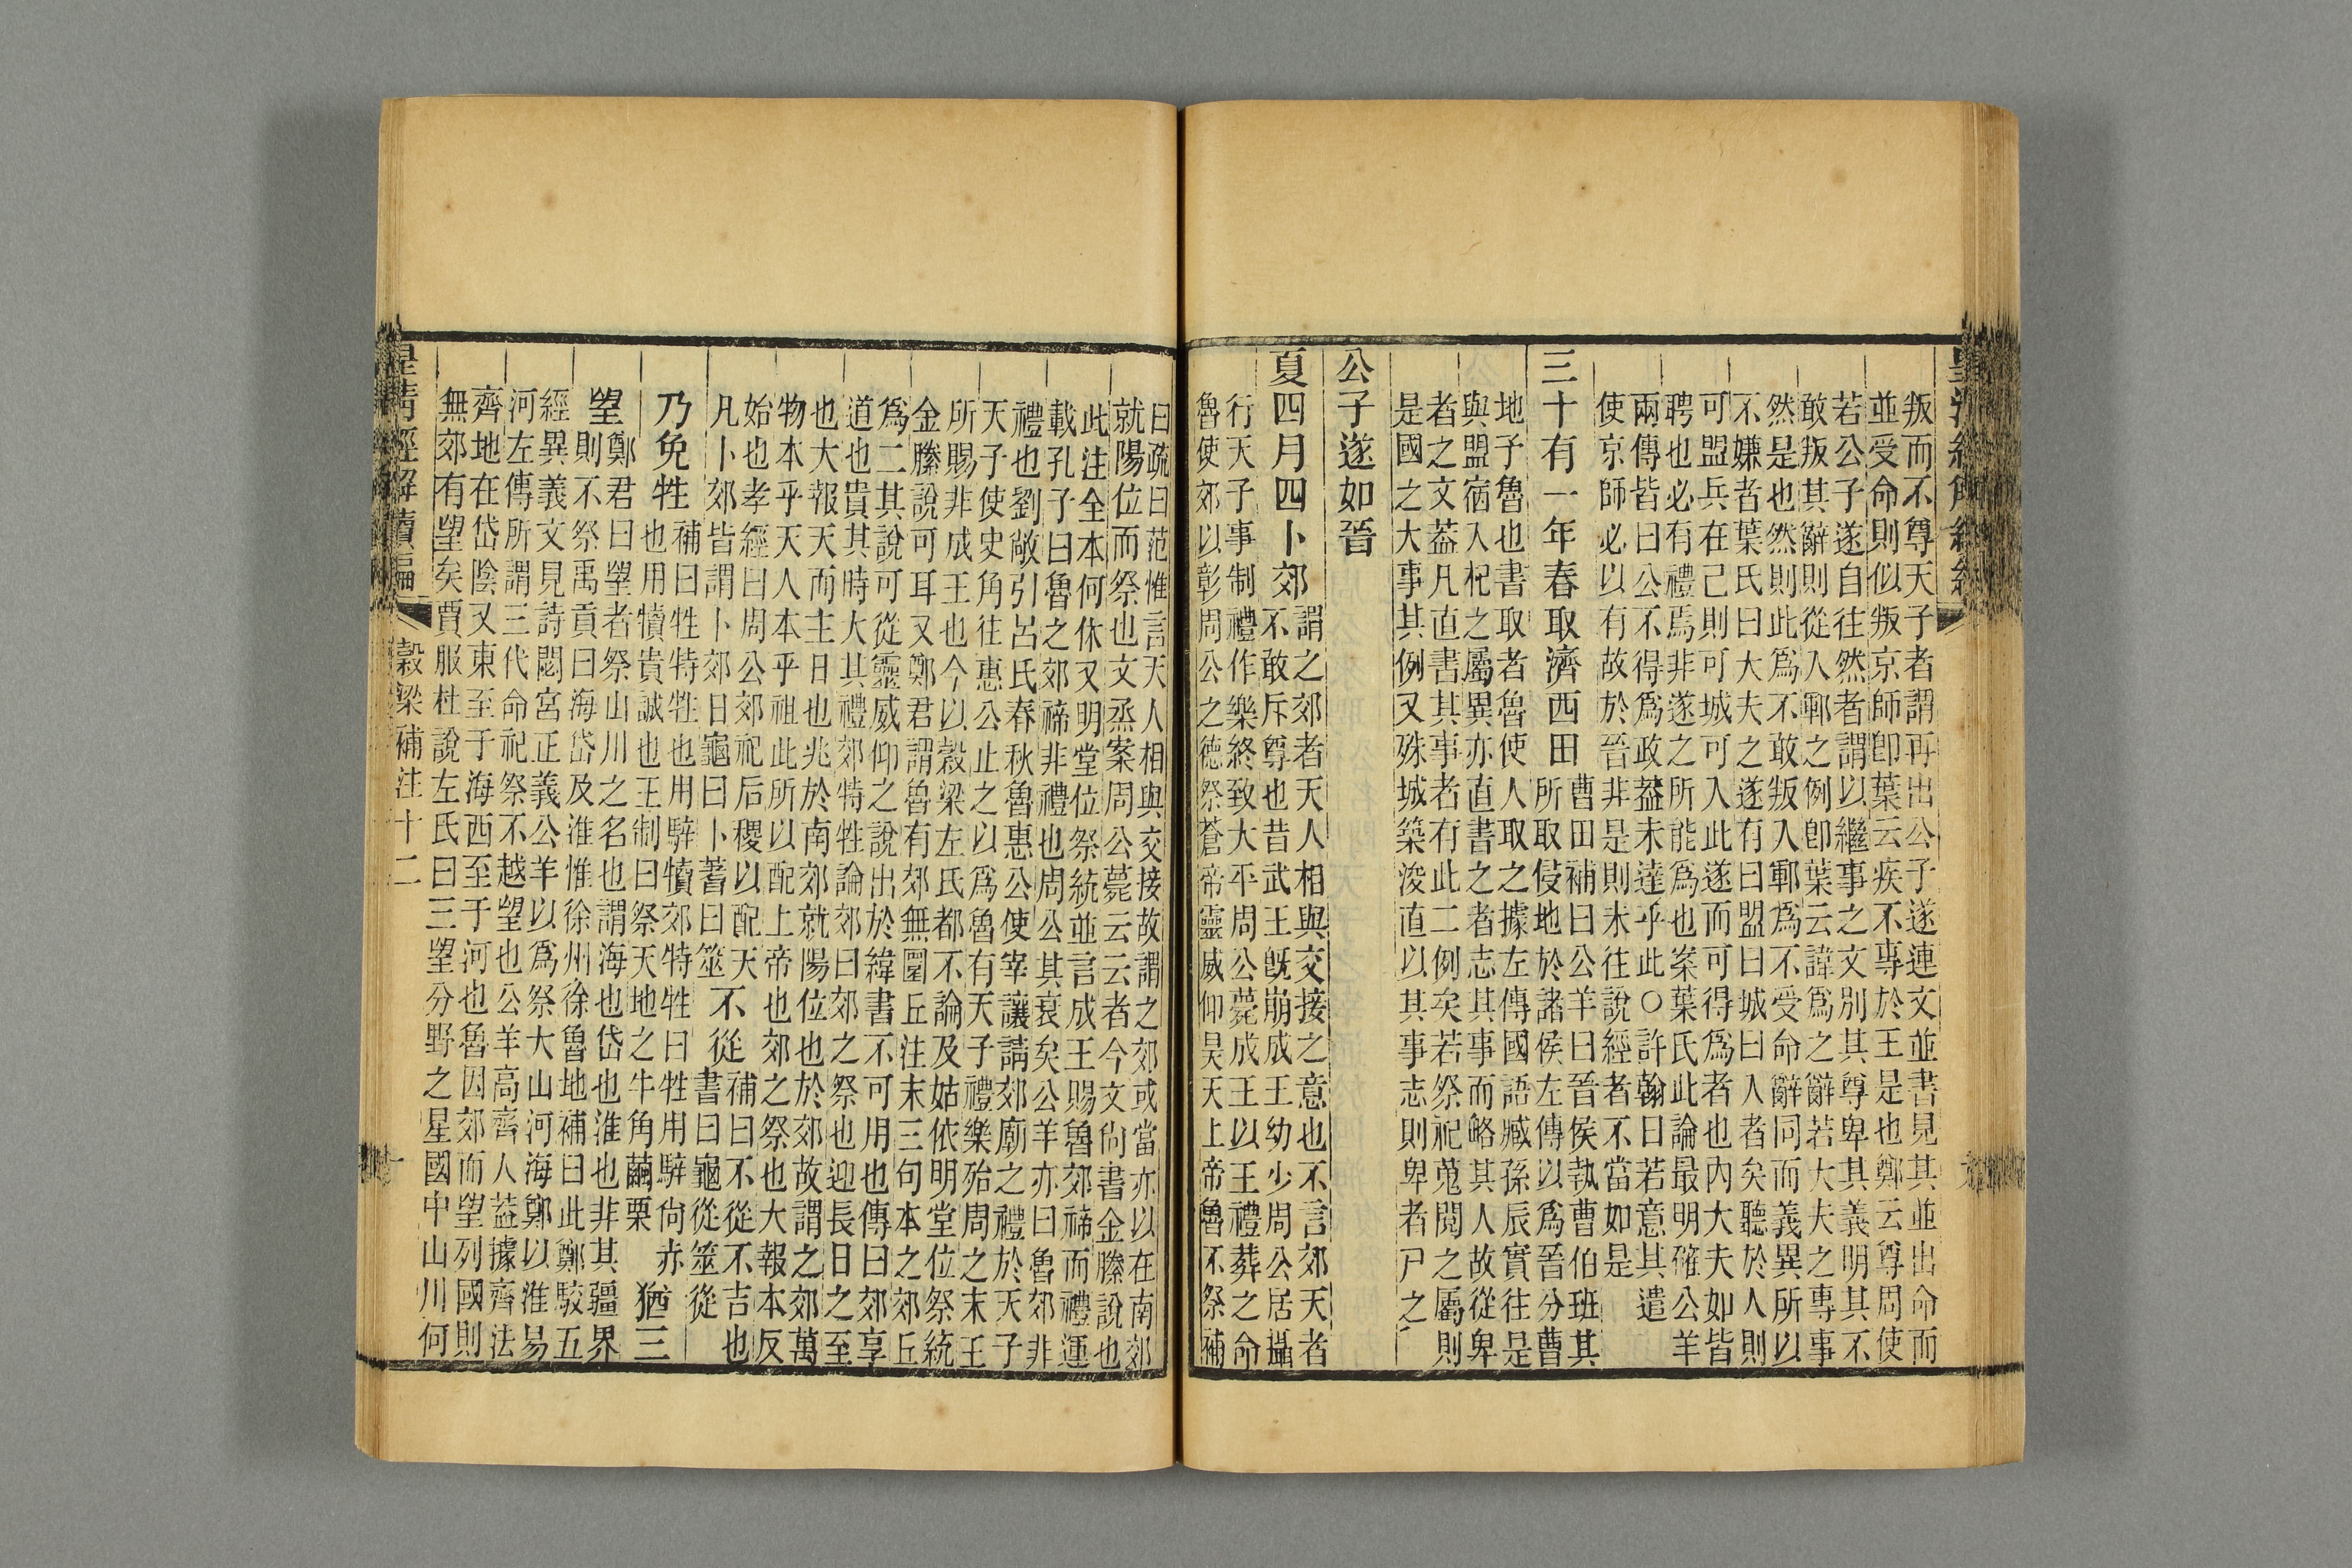 叛而不尊天子者謂再出公子遂連文並書見其並出命而
並受命則似叛京師卽葉云疾不專於王是也鄭云尊周使
若公子遂自往然者謂以繼事之文別其尊卑其義明其不
敢叛其辭則從入鄆之例卽葉云諱爲之辭若大夫之專事
然是也然則此爲不敢叛入鄆爲不受命辭同而義異所以
不嫌者葉氏曰大夫之遂有曰盟曰城曰人者矣聽於人則
可盟兵在己則可城可入此遂而可得爲者也內大夫如皆
聘也必有禮焉非遂之所能爲也案葉氏此論最明確公羊
兩傳皆曰公不得爲政葢未達乎此○許翰曰若意其遣
使京師必以有故於晉非是則未往說經者不當如是
三十有一年春取濟西田 曹田補曰公羊曰晉侯執曹伯班其
所取侵地於諸侯左傳以爲晉分曹
地子魯也書取者魯使人取之據左傳國語臧孫辰實往是
與盟宿入杞之屬異亦直書之者志其事而略其人故從卑
者之文葢凡直書其事者有此二例矣若祭祀蒐閱之屬則
是國之大事其例又殊城築浚直以其事志則卑者尸之
公子遂如晉
夏四月四卜郊 謂之郊者天人相與交接之意也不言郊天者
不敢斥尊也昔武王既崩成王幼少周公居攝
行天子事制禮作樂終致大平周公薨成王以王禮葬之命
魯使郊以彰周公之德祭蒼帝靈威仰昊天上帝魯不祭補
曰疏曰范惟言天人相與交接故謂之郊或當亦以在南郊
就陽位而祭也文烝案周公薨云云者今文尚書金縢說也
此注全本何休又明堂位祭統並言成王賜魯郊禘而禮運
載孔子曰魯之郊禘非禮也周公其衰矣公羊亦曰魯郊非
禮也劉敞引呂氏春秋魯惠公使宰讓請郊廟之禮於天子
天子使史角往惠公止之以爲魯有天子禮樂殆周之末王
所賜非成王也今以穀梁左氏都不論及姑依明堂位祭統
金縢說可耳又鄭君謂魯有郊無圜丘注末三句本之郊丘
爲二其說可從靈威仰之說出於緯書不可用也傳曰郊享
道也貴其時大其禮郊特牲論郊曰郊之祭也迎長日之至
也大報天而主日也兆於南郊就陽位也於郊故謂之郊萬
物本乎天人本乎祖此所以配上帝也郊之祭也大報本反
始也孝經曰周公郊祀后稷以配天
凡卜郊皆謂卜郊日龜曰卜蓍曰筮
不從 補曰不從不吉也
書曰龜從筮從
乃免牲 補曰牲特牲也用騂犢郊特牲曰牲用騂尚赤
也用犢貴誠也王制曰祭天地之牛角繭栗
猶三
望 鄭君曰望者祭山川之名也謂海也岱也淮也非其疆界
則不祭禹貢曰海岱及淮惟徐州徐魯地補曰此鄭駁五
經異義文見詩閟宮正義公羊以爲祭大山河海鄭以淮易
河左傳所謂三代命祀祭不越望也公羊高齊人葢據齊法
齊地在岱陰又東至于海西至于河也魯因郊而望列國則
無郊有望矣賈服杜說左氏曰三望分野之星國中山川何
皇清經解續編 穀梁補注十二